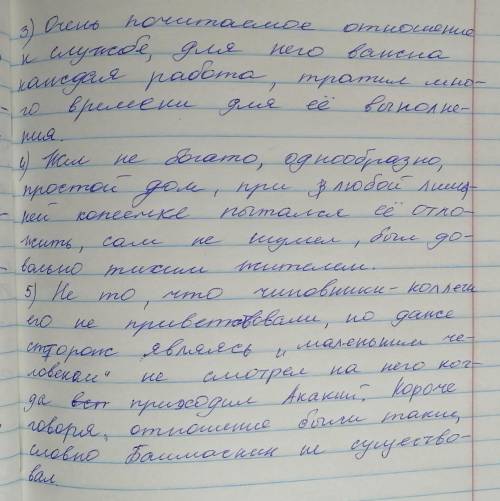 3) Очень почитаемое отношение
к службе, для него важна
каждая работа, тратил мно-
го времени для её выполне-
ния.
4) Жил не богато, однообразно,
простой дом, при любой лиш-
ней копеечке пытался её отло-
жить, сам не шумел, был до-
вольно тихим жителем.
5) Не то, что чиновники-коллеги
его не приветствовали, но даже
сторож являясь „маленьким че-
ловеком“ не смотрел на него ког-
да приходил Акакий. Короче
говоря, отношение были такие,
словно Башмачкин не существо-
вал.